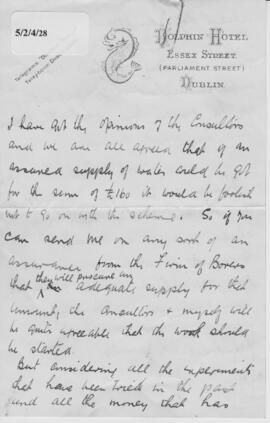 5/2/4/28
DOLPHIN HOTEL
ESSEX STREET.
(PARLIAMENT STREET)
DUBLIN.
I have got the opinions of the Consultors
and we are all agreed that if an
assured supply of water could be got
for the sum of £160 it would be foolish
not to go on with the scheme. So if you
can send me on any sort of an
assurance from the Firm of Borers
that they will procure an adequate supply for that
amount, the Consultors & myself will
be quite agreeable that the work should
be started.
But considering all the experiments
that have been tried in the past
and all the money that has